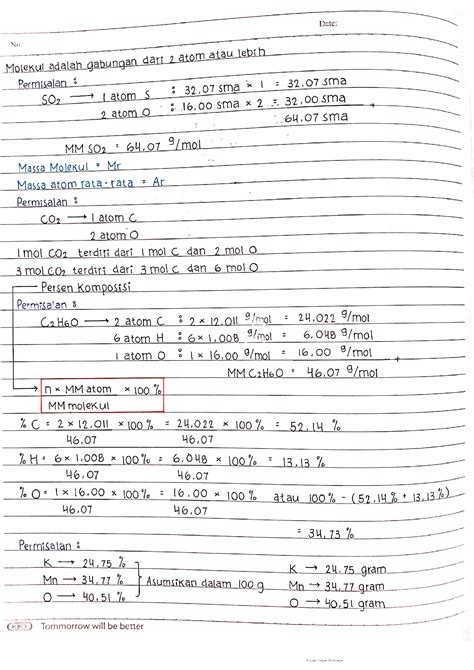 Date:
No.
Molekul adalah gabungan dari 2 atom atau lebih
Permisalan :
SO₂ → 1 atom S : 32,07 sma × 1 = 32,07 sma
2 atom O : 16,00 sma × 2 = 32,00 sma +
64,07 sma
MM SO₂ = 64,07 g/mol
Massa Molekul = Mr
Massa atom rata-rata = Ar
Permisalan :
CO₂ → 1 atom C
2 atom O
1 mol CO₂ terdiri dari 1 mol C dan 2 mol O
3 mol CO₂ terdiri dari 3 mol C dan 6 mol O
Persen Komposisi
Permisalan :
C₂H₆O → 2 atom C : 2 × 12,011 g/mol = 24,022 g/mol
6 atom H : 6 × 1,008 g/mol = 6,048 g/mol
1 atom O : 1 × 16,00 g/mol = 16,00 g/mol +
MM C₂H₆O = 46,07 g/mol
n × MM atom × 100 %
MM molekul
% C = 2 × 12,011 × 100 % = 24,022 × 100 % = 52,14 %
46,07 46,07
% H = 6 × 1,008 × 100 % = 6,048 × 100 % = 13,13 %
46,07 46,07
% O = 1 × 16,00 × 100 % = 16,00 × 100 % atau 100 % - (52,14 % + 13,13 %)
46,07 46,07
= 34,73 %
Permisalan :
K → 24,75 % K → 24,75 gram
Mn → 34,77 % Asumsikan dalam 100 g Mn → 34,77 gram
O → 40,51 % O → 40,51 gram
Tommorrow will be better